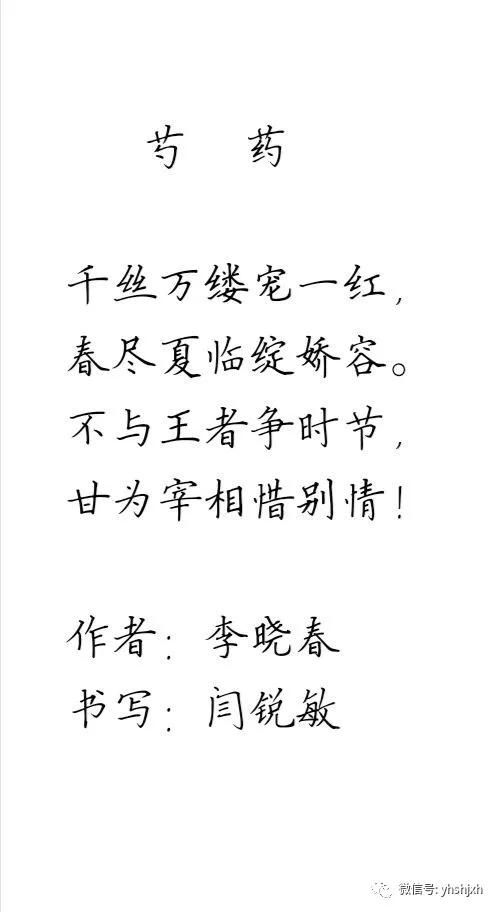 芍 药
千丝万缕宠一红，
春尽夏临绽娇容。
不与王者争时节，
甘为宰相惜别情！
作者：李晓春
书写：闫锐敏
微信号: yhshjxh